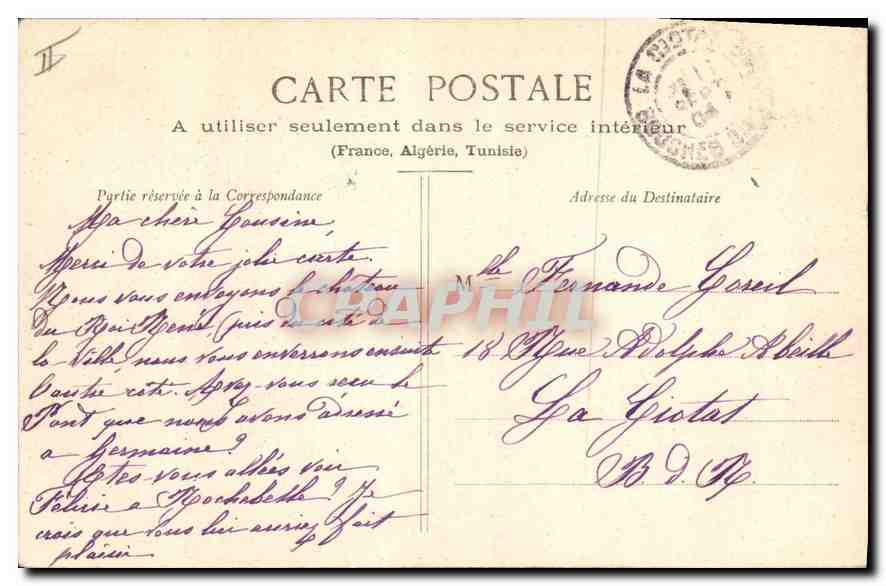 II
CARTE POSTALE
A utiliser seulement dans le service intérieur
(France, Algérie, Tunisie)
Partie réservée à la Correspondance
Ma chère Cousine,
Merci de votre jolie carte.
Nous vous envoyons le chateau
du Roi René (puis du coté de
la Ville, nous vous enverrons ensuite
l'autre coté. Avez-vous reçu le
Pont que nous avons adressé
a Germaine?
Etes-vous allées voir
Félicie a Rochebelle? Je
crois que vous lui auriez fait
plaisir
Adresse du Destinataire
Mlle Fernande Coreil
18 Rue Adolphe Abeille
La Ciotat
B d. R
LA CIOTAT
BOUCHES DU
04
CPAPHIL